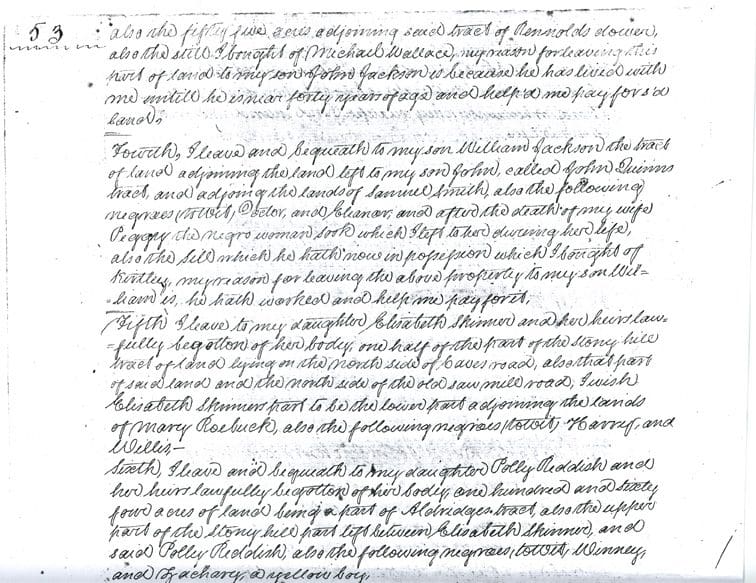 53
also the fifty five acres adjoining said tract of Rennolds dower,
also the still I bought of Michael Wallace, my reason for leaving this
part of land to my son John Jackson is because he has lived with
me untill he is near forty years of age and help'd me pay for s'd
land,
Fourth, I leave and bequeath to my son William Jackson the tract
of land adjoining the land left to my son John, called John Quinns
tract, and adjoing the lands of Samuel Smith, also the following
negroes, towit, Doctor, and Eleanor, and after the death of my wife
Peggy the negro woman sook which I left to her during her life,
also the still which he hath now in possession which I bought of
Kirtley, my reason for leaving the above property to my son Wil-
-liam is, he hath worked and help me pay for it,
Fifth I leave to my daughter Elisabeth Skinner and her heirs law-
-fully begotton of her body, one half of the part of the stony hill
tract of land lying on the north side of Caves road, also that part
of said land and the north side of the old saw mill road, I wish
Elisabeth Skinners part to be the lower part adjoining the lands
of Mary Roebuck, also the following negroes, towit, Harry, and
Willis—
Sixth, I leave and bequeath to my daughter Polly Reddish and
her heirs lawfully begotton of her body, one hundred and sixty
four acres of land being a part of Aldridges tract, also the upper
part of the Stony hill part left between Elisabeth Skinner, and
said Polly Reddish, also the following negroes, towit, Winney,
and Zachary, a yellow boy,